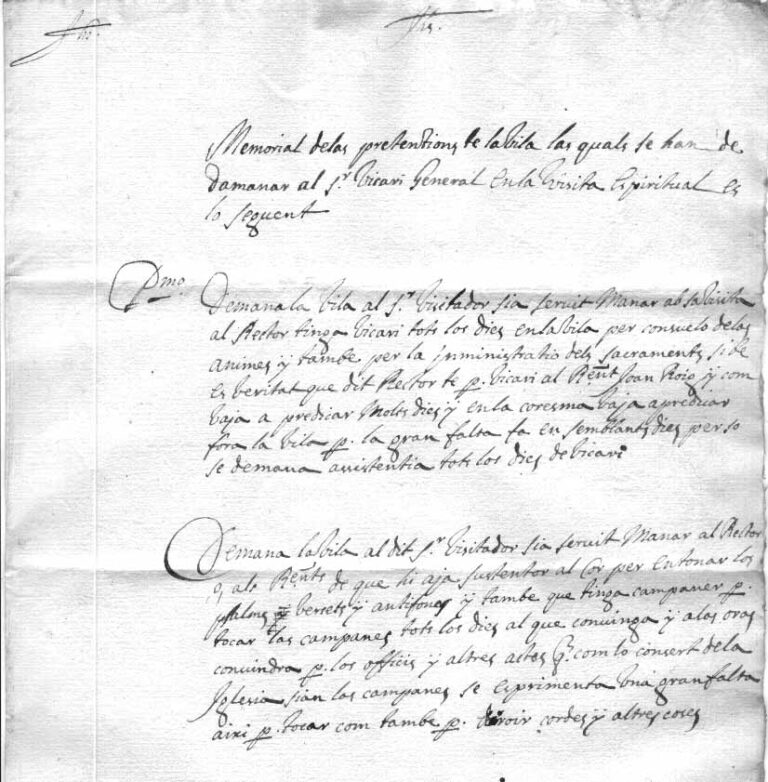 Jhs. Jhs.
Memorial delas pretentions de la Vila las quals se han de
damanar al Sr. Vicari General en la Visita Espiritual es
lo seguent
Pmo. Demana la Vila al Sr. Visitador sia servit Manar ab sa Visita
al Rector tinga Vicari tots los dies en la Vila per consuelo de las
Animes y tambe per la inministratio dels sacraments si be
es veritat que dit Rector te p. Vicari al Rent Joan Roig y com
vaja a predicar Molts dies y en la coresma vaja a predicar
fora la Vila p. la gran falta fa en semblants dies per so
se demana assistentia tots los dies de Vicari
Demana la Vila al dit Sr. Visitador sia servit Manar al Rector
o, als Rents de que hi aja sustentor al Cor per entonar los
psalms y versets y antifones y tambe que tinga campaner p.
tocar las campanes tots los dies al que convinga y alas oras
convindra p. los officis y altres actes q. com lo consert de la
Iglesia sian las campanes se esprimenta Una gran falta
aixi p. tocar com tambe p. cordes y altres coses